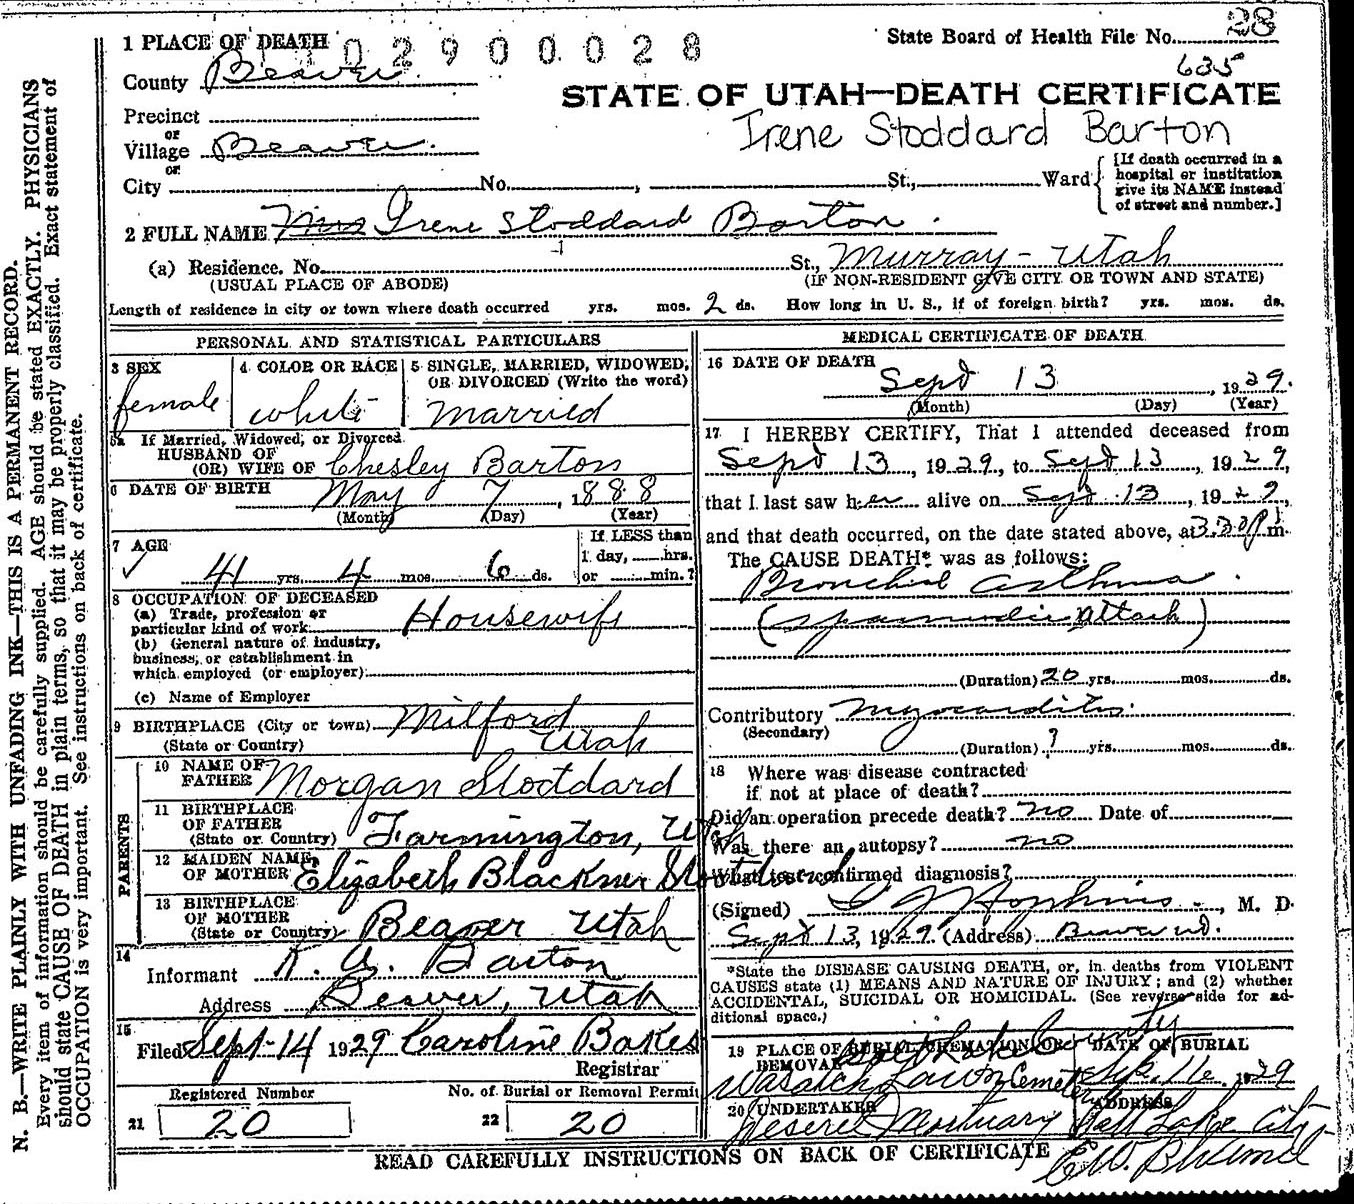 1 PLACE OF DEATH
1029 00028
State Board of Health File No. 28
635
County Beaver
STATE OF UTAH—DEATH CERTIFICATE
Irene Stoddard Barton
Precinct
or
Village Beaver.
or
City No. , St., Ward
[If death occurred in a
hospital or institution
give its NAME instead
of street and number.]
2 FULL NAME Mrs Irene Stoddard Barton.
(a) Residence. No. St., Murray - Utah
(USUAL PLACE OF ABODE) (IF NON-RESIDENT GIVE CITY OR TOWN AND STATE)
Length of residence in city or town where death occurred yrs. mos. 2 ds. How long in U. S., if of foreign birth? yrs. mos. ds.
PERSONAL AND STATISTICAL PARTICULARS
3 SEX
female
4 COLOR OR RACE
white
5 SINGLE, MARRIED, WIDOWED,
OR DIVORCED (Write the word)
Married
5a If Married, Widowed, or Divorced
HUSBAND OF
(OR) WIFE OF Chesley Barton
6 DATE OF BIRTH May 7, 1888
(Month) (Day) (Year)
7 AGE
41 yrs. 4 mos. 6 ds.
If LESS than
1 day, hrs.
or min.?
8 OCCUPATION OF DECEASED
(a) Trade, profession or
particular kind of work Housewife
(b) General nature of industry,
business, or establishment in
which employed (or employer)
(c) Name of Employer
9 BIRTHPLACE (City or town) Milford
(State or Country) Utah
PARENTS
10 NAME OF
FATHER Morgan Stoddard
11 BIRTHPLACE
OF FATHER
(State or Country) Farmington, Utah
12 MAIDEN NAME
OF MOTHER Elizabeth Blackner Stoddard
13 BIRTHPLACE
OF MOTHER
(State or Country) Beaver Utah
14
Informant K. A. Barton
Address Beaver, Utah
15
Filed Sept-14 1929 Caroline Bakes
Registrar
Registered Number
21 20
No. of Burial or Removal Permit
22 20
MEDICAL CERTIFICATE OF DEATH
16 DATE OF DEATH
Sept 13, 1929.
(Month) (Day) (Year)
17 I HEREBY CERTIFY, That I attended deceased from
Sept 13, 1929, to Sept 13, 1929,
that I last saw her alive on Sept 13, 1929,
and that death occurred, on the date stated above, at 3:30 P m.
The CAUSE DEATH* was as follows:
Bronchial asthma.
(spasmodic attack)
(Duration) 20 yrs. mos. ds.
Contributory Myocarditis.
(Secondary)
(Duration) ? yrs. mos. ds.
18 Where was disease contracted
if not at place of death?
Did an operation precede death? no Date of
Was there an autopsy? no
What test confirmed diagnosis?
(Signed) Hopkins, M. D.
Sept 13, 1929. (Address) Beaver
*State the DISEASE CAUSING DEATH, or, in deaths from VIOLENT
CAUSES state (1) MEANS AND NATURE OF INJURY; and (2) whether
ACCIDENTAL, SUICIDAL OR HOMICIDAL. (See reverse side for ad-
ditional space.)
19 PLACE OF BURIAL, CREMATION, OR
REMOVAL
Salt Lake County
Wasatch Lawn Cemetery
DATE OF BURIAL
Sept. 16 1929
20 UNDERTAKER
Deseret Mortuary
ADDRESS
Salt Lake City
READ CAREFULLY INSTRUCTIONS ON BACK OF CERTIFICATE
N. B.—WRITE PLAINLY WITH UNFADING INK—THIS IS A PERMANENT RECORD.
Every item of information should be carefully supplied. AGE should be stated EXACTLY. PHYSICIANS
should state CAUSE OF DEATH in plain terms, so that it may be properly classified. Exact statement of
OCCUPATION is very important. See instructions on back of certificate.